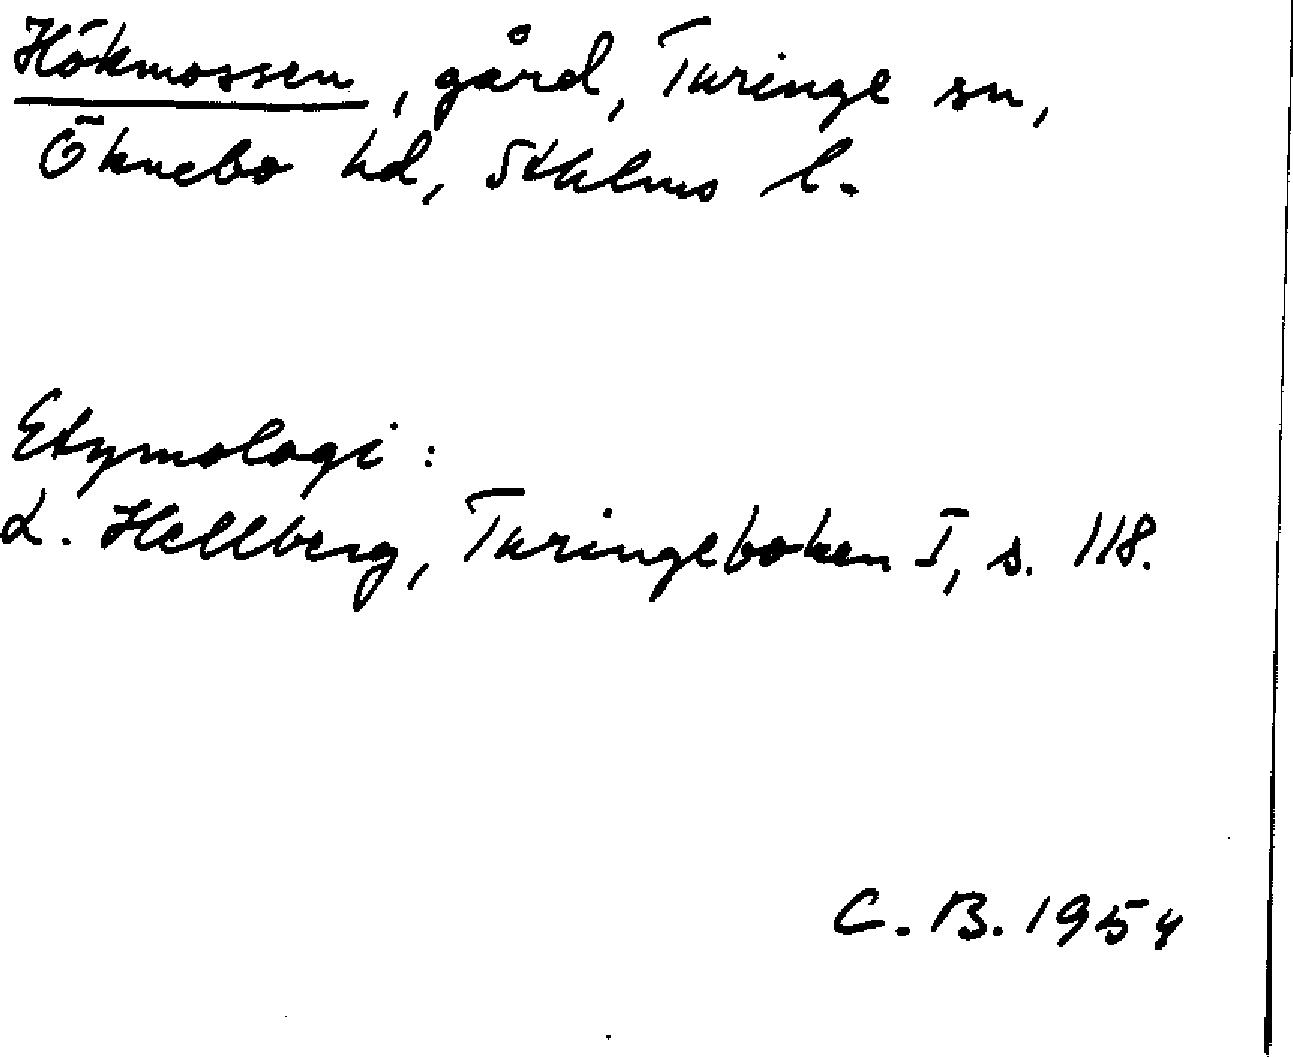 Hökmossen, gård, Turinge sn,
Öknebo hd, Sthlms l.
Etymologi:
L. Hellberg, Turingeboken I, s. 118.
C. B. 1954